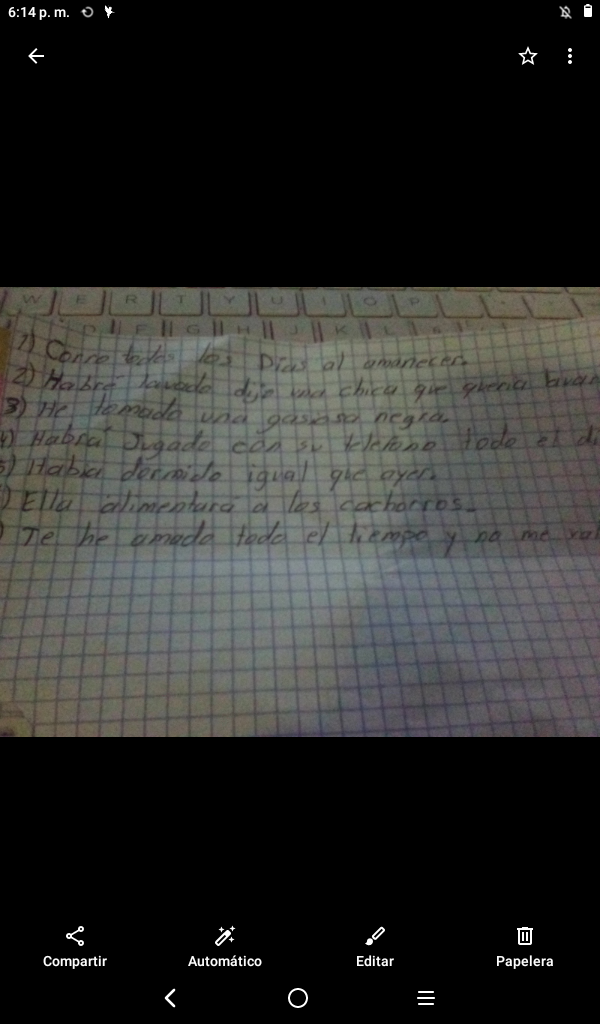 6:14 p. m.
W E R T Y U I O P
D F G H J K L
1) Corro todos los Dias al amanecer.
2) Habré lavado dijo una chica que queria lavar
3) He tomado una gasiosa negra.
4) Habrá Jugado con su telefono todo el di
5) Habia dormido igual que ayer.
) Ella alimentara a los cachorros.
) Te he amado todo el tiempo y no me val
Compartir Automático Editar Papelera